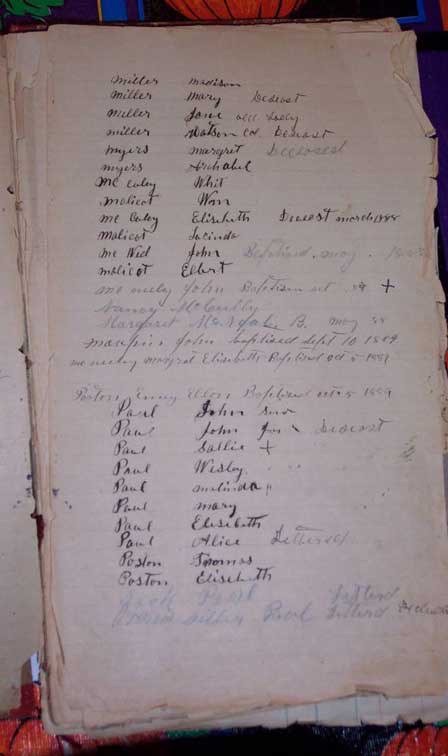 miller madison
miller mary Deseast
miller Jane old Lady
miller Watson Col. Deseast
myers margret Deceosed
myers Archabel
Mc Caley Whit
malicot Wm
mc Caley Elisebeth Deseast march 1888
Malicot Lucinda
Mc Nid John Baptised may
malicot Elbert
mc neeley John Baptism oct +
Nancy McCauley
Margaret B. may 88
maupin John baptised Sept 10 1889
mc neeley margret Elisebeth Baptised oct 5 1889
Poston Emey Ellen Baptised oct 5 1889
Paul John Sinor
Paul John Jr Deseast
Paul Sallie +
Paul Wesley
Paul melinda "
Paul mary
Paul Elisebeth
Paul Alice Lettered
Poston Thomas
Poston Elisebeth
Jack Paul Letterd
Paul Letterd